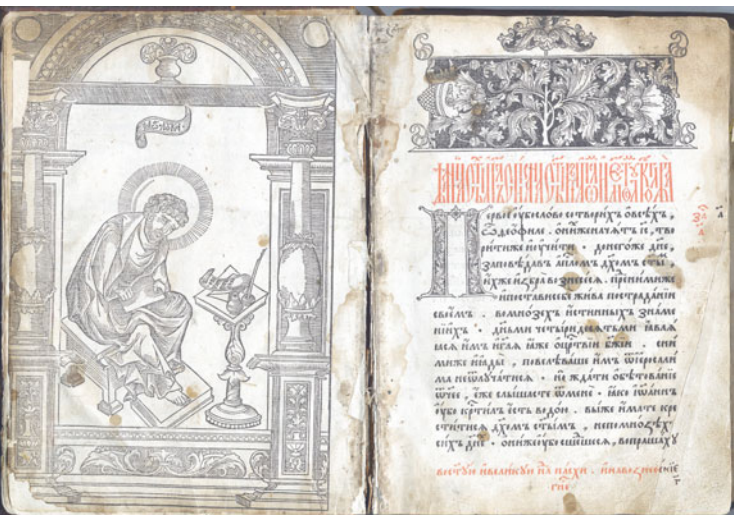 Первое ᲂубо слово сотворихъ ѡвсѣхъ,
ѽ ѳеофиле. ѡнихже начатъ іс҃, тво
рити же и ᲂучити. донегоже дн҃е,
заповѣдавъ апⷭ҇лѡмъ дх҃омъ ст҃ы,
ихже избра вознесесѧ. пред нимиже
и постави себе жива по страданїи
своемъ. вомнозѣхъ истинныхъ знаме
нїихъ. дн҃ьми четыридесѧтьми ꙗвлѧѧ
сѧ имъ и гл҃ѧ ꙗже ѡ црⷭ҇твїи бж҃їи. сни
миже и ꙗды, повелѣваше имъ ѿ іерⷭ҇али
ма не ѿлучатисѧ. но ждати ѡбѣтованїе
ѿчее, еже слышасте ѿмене. ꙗко іѡаннъ
ᲂубо крⷭ҇тилъ есть водою. вы же имате кре
ститисѧ дх҃омъ ст҃ымъ, непомнозѣхъ
сихъ дн҃е. ѡниже ᲂубо сшедшесѧ, вопрашахꙋ
ивеликꙋю нл҃ю пасхи. инавознесенїе
гн҃е